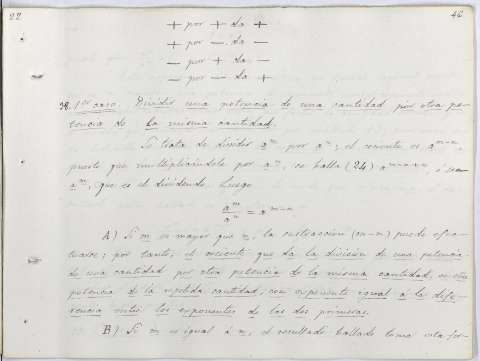 22 46
+ por + da +
+ por — da —
— por + da —
— por — da +
38. 1er caso. Dividir una potencia de una cantidad por otra po-
tencia de la misma cantidad.
Se trata de dividir a^m por a^n; el cociente es a^m-n,
puesto que multiplicándole por a^n, se halla (24) a^m-n+n, o sea
a^m, que es el dividendo. Luego
a^m/a^n = a^m-n
A) Si m es mayor que n, la sustracción (m-n) puede efec-
tuarse; por tanto, el cociente que da la división de una potencia
de una cantidad por otra potencia de la misma cantidad, es otra
potencia de la repetida cantidad, con exponente igual a la dife-
rencia entre los exponentes de las dos primeras.
B) Si m es igual a n, el resultado hallado toma esta for-